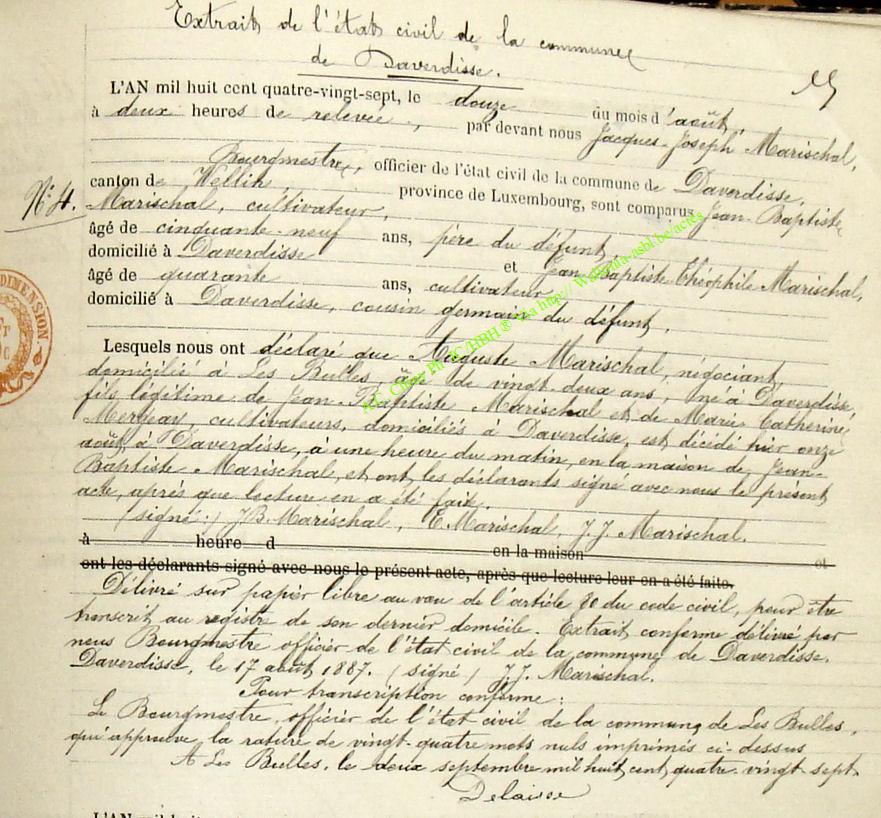 Extrait de l'état civil de la commune
de Daverdisse.
L'AN mil huit cent quatre-vingt-sept, le douze du mois d'août,
à deux heures de relevée, par devant nous Jacques-Joseph Marischal,
Bourgmestre, officier de l'état civil de la commune de Daverdisse,
canton de Wellin, province de Luxembourg, sont comparus Jean-Baptiste
N° 4. Marischal, cultivateur,
âgé de cinquante neuf ans, père du défunt,
domicilié à Daverdisse et Jean-Baptiste Théophile Marischal,
âgé de quarante ans, cultivateur,
domicilié à Daverdisse, cousin germain du défunt.
Lesquels nous ont déclaré que Auguste Marischal, négociant,
domicilié à Les Bulles, âgé de vingt-deux ans, né à Daverdisse,
fils légitime de Jean-Baptiste Marischal et de Marie Catherine
cultivateurs, domiciliés à Daverdisse, est décédé hier onze
août, à Daverdisse, à une heure du matin, en la maison de Jean-
Baptiste Marischal, et ont les déclarants signé avec nous le présent
acte, après que lecture en a été faite.
(signé:) J.B. Marischal, E. Marischal, J.J. Marischal.
à heure d en la maison et
ont les déclarants signé avec nous le présent acte, après que lecture leur en a été faite.
Délivré sur papier libre au vœu de l'article 80 du code civil, pour être
transcrit au registre de son dernier domicile. Extrait conforme délivré par
nous Bourgmestre officier de l'état civil de la commune de Daverdisse.
Daverdisse, le 17 août 1887. (signé) J.J. Marischal.
Pour transcription conforme:
Le Bourgmestre, officier de l'état civil de la commune de Les Bulles,
qui approuve la rature de vingt-quatre mots nuls imprimés ci-dessus
A Les Bulles, le deux septembre mil huit cent quatre-vingt sept
L'AN mil huit
DIMENSION.